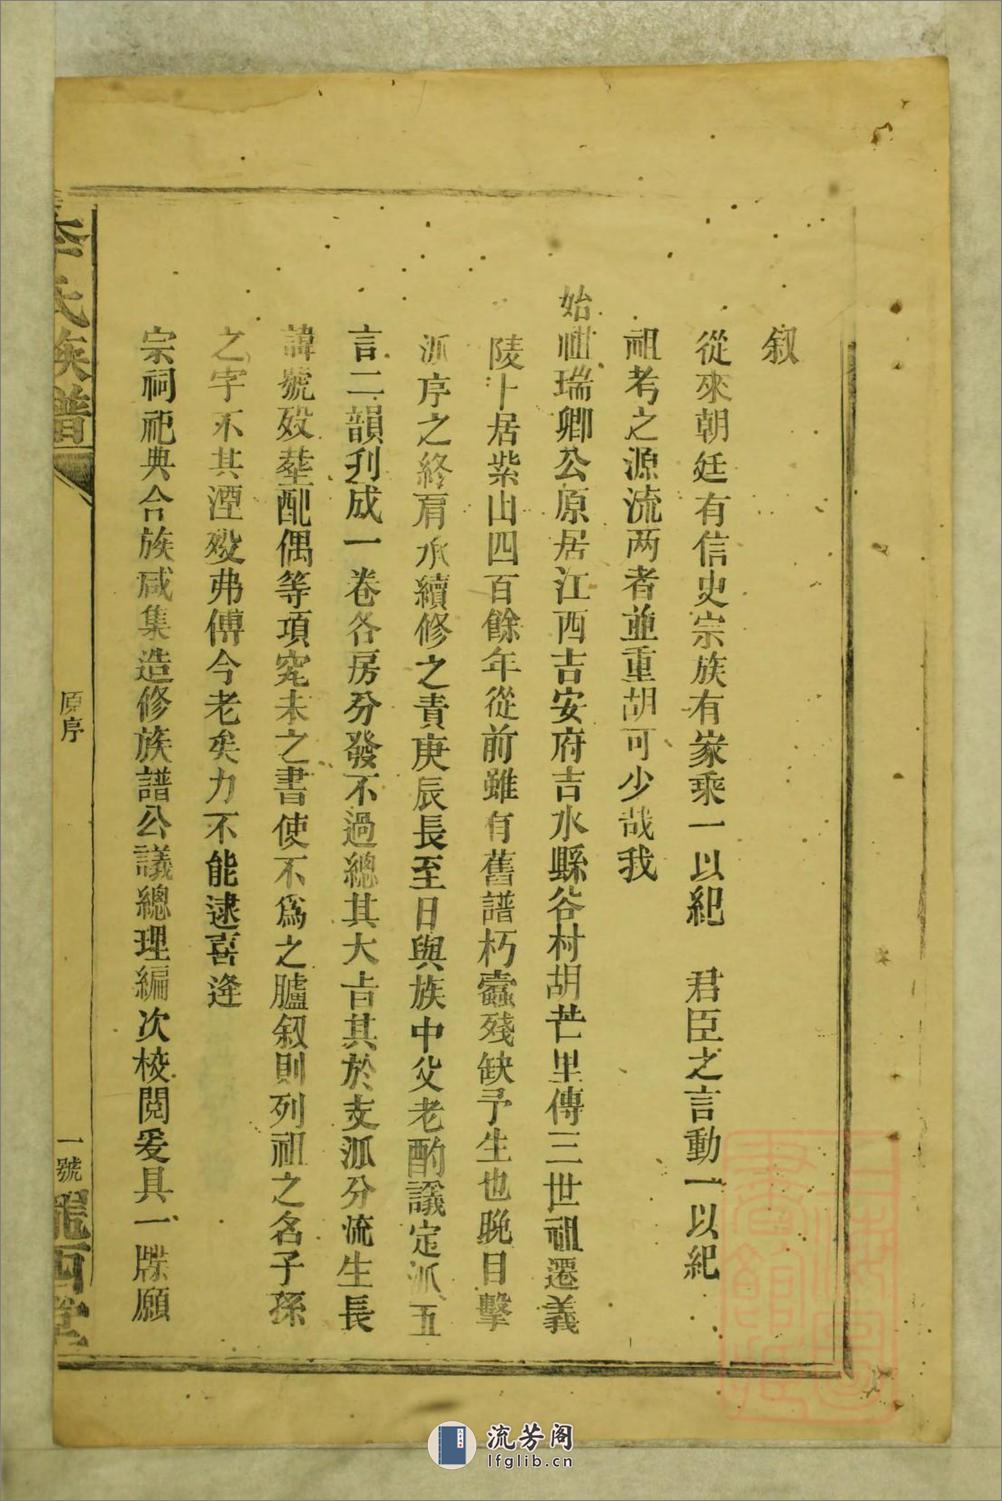 叙
從來朝廷有信史宗族有家乘一以紀 君臣之言動一以紀
祖考之源流两者並重胡可少哉我
始祖瑞卿公原居江西吉安府吉水縣谷村胡芒里傳三世祖遷義
陵卜居柴山四百餘年從前雖有舊譜朽蠹殘缺予生也晚目擊
派序之終肩承續修之責庚辰長至日與族中父老酌議定派五
言二韻刋成一卷各房分發不過總其大旨其於支派分流生長
諱號歿塟配偶等項究未之書使不爲之臚叙則列祖之名子孫
之字不其湮歿弗傳今老矣力不能逮喜逢
宗祠祀典合族咸集造修族譜公議總理編次校閲爰具一牒願
李氏族譜
原序
一號
隴西堂
流芳阁
lfglib.cn